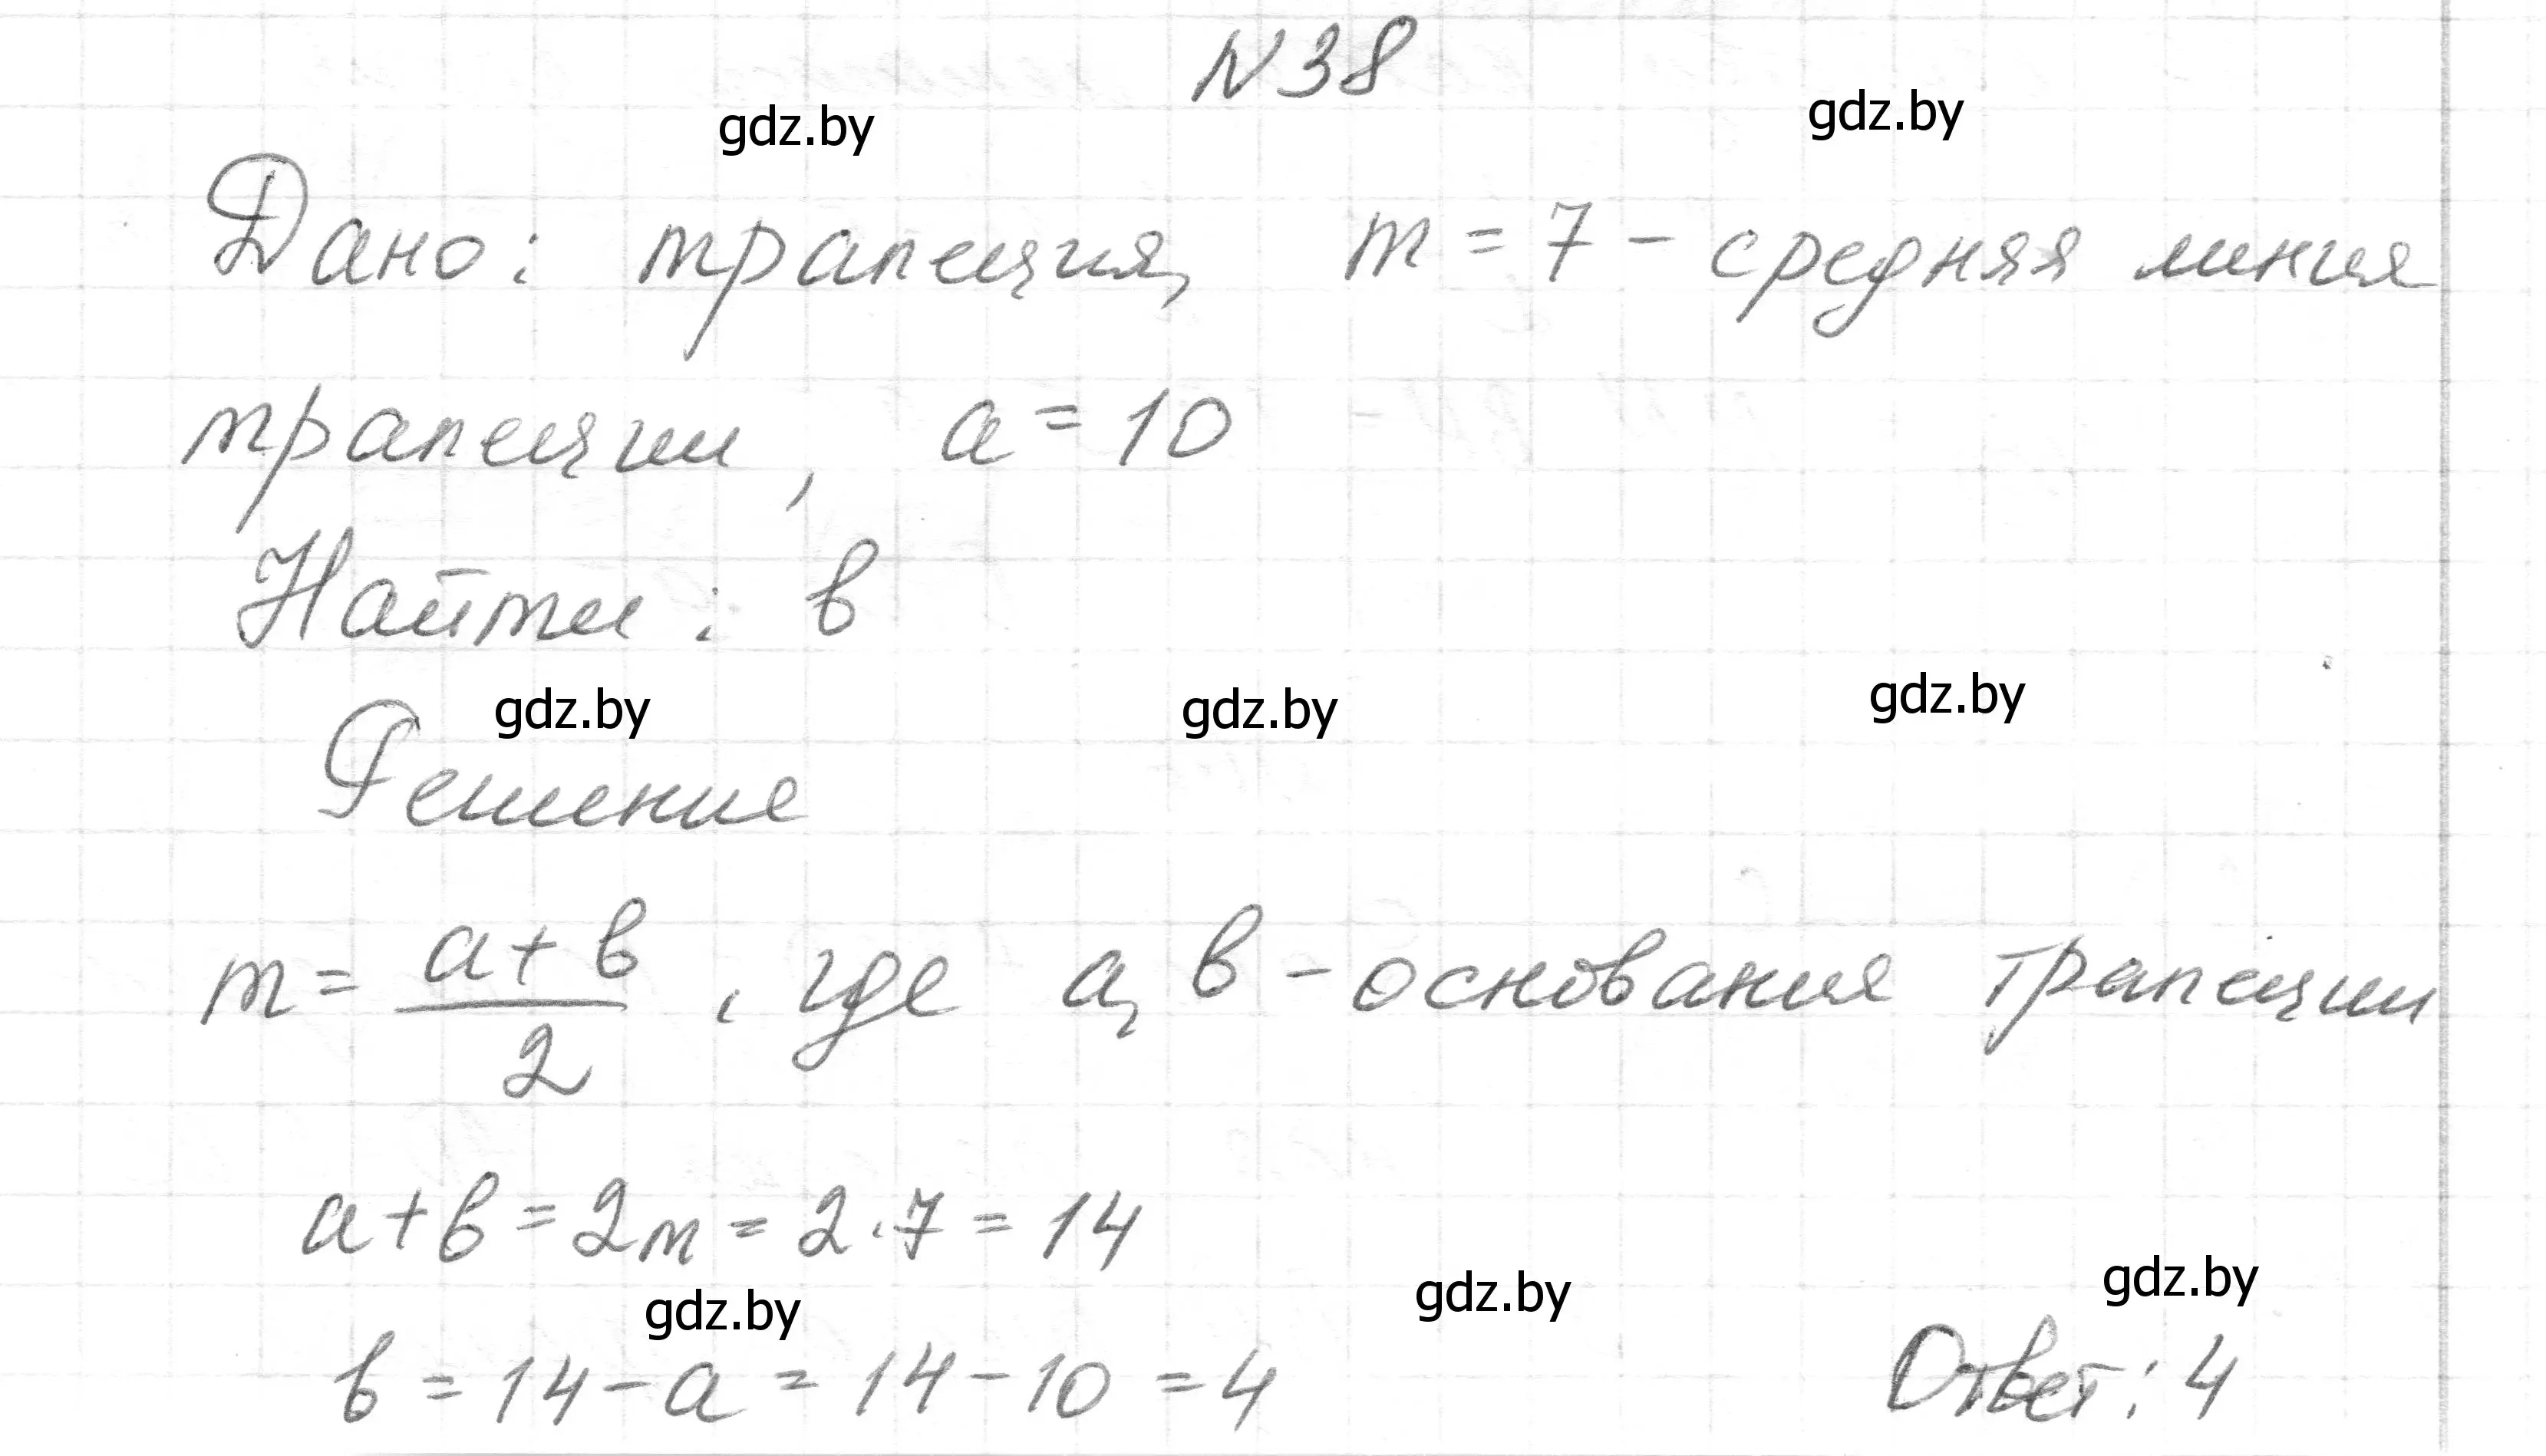 N38
gdz.by gdz.by
Дано: трапеция, m = 7 - средняя линия
трапеции, a = 10
Найти: в
gdz.by gdz.by gdz.by
Решение
m = \frac{a+в}{2}, где a, в - основания трапеции
a + в = 2m = 2·7 = 14
gdz.by gdz.by gdz.by
в = 14 - a = 14 - 10 = 4 Ответ: 4